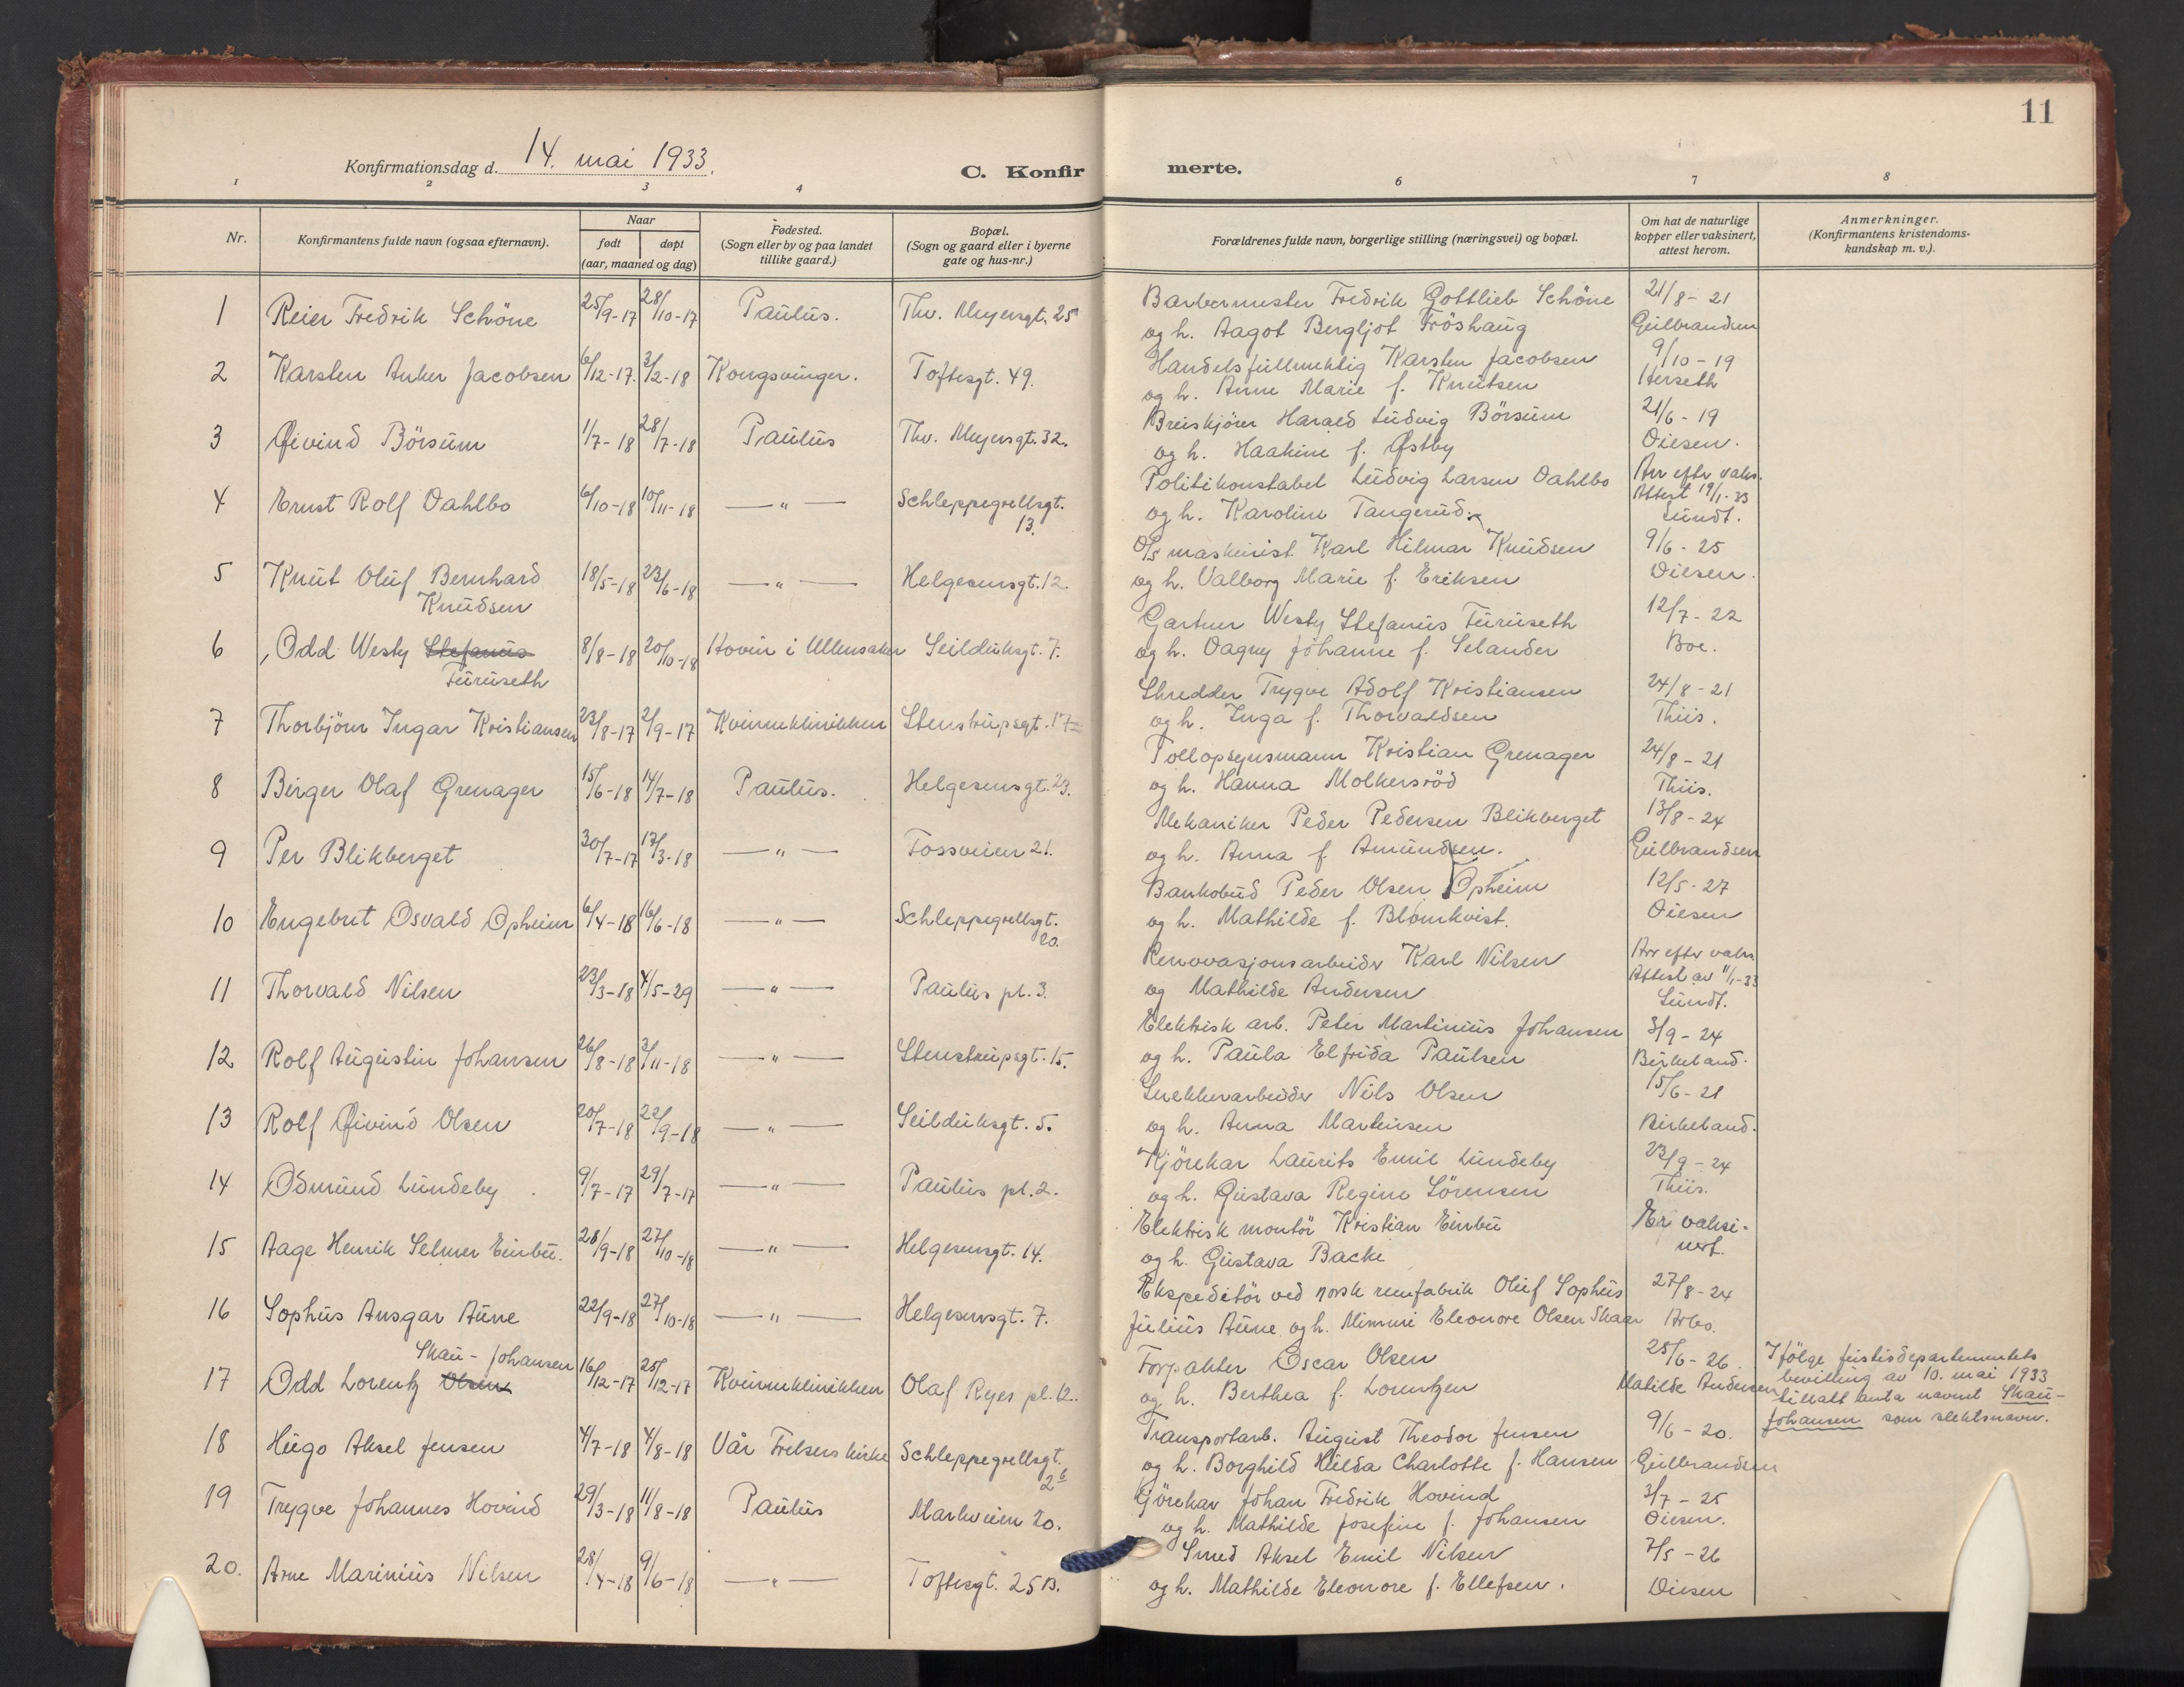 11
Konfirmationsdag d. 14. mai 1933.
C. Konfirmerte.
1 2 3 4 6 7 8
Nr.
Konfirmantens fulde navn (ogsaa efternavn).
Naar
født
døpt
(aar, maaned og dag)
Fødested.
(Sogn eller by og paa landet
tillike gaard.)
Bopæl.
(Sogn og gaard eller i byerne
gate og hus-nr.)
Forældrenes fulde navn, borgerlige stilling (næringsvei) og bopæl.
Om hat de naturlige
kopper eller vaksinert,
attest herom.
Anmerkninger.
(Konfirmantens kristendoms-
kundskap m. v.).
1 Reier Fredrik Schöne 25/9-17 28/10-17 Paulus. Thv. Meyersgt. 25 Barbermester Fredrik Gottlieb Schöne 21/8-21
og h. Aagot Bergljot Fröshaug Gulbrandsen
2 Karsten Anker Jacobsen 6/12-17. 3/2-18 Kongsvinger. Toftesgt. 49. Handelsfullmektig Karsten Jacobsen 9/10-19
og h. Anne Marie f. Knutsen Herseth
3 Øivind Börsum 1/7-18 28/7-18 Paulus Thv. Meyersgt. 32. Harald Ludvig Börsum 21/6-19
og h. Haakine f. Østby Oiesen.
4 Ernst Rolf Dahlbo 6/10-18 10/11-18 —"— Schleppegrellsgt. 13. Politikonstabel Ludvig Larsen Dahlbo Arr efter vaks.
Attest 19/1-33
og h. Karoline Tangerud. Lundt.
5 Knut Oluf Bernhard 18/5-18 23/6-18 —"— Helgesensgt. 12. maskinist Karl Hilmar Knudsen 9/6-25
Knudsen
og h. Valborg Marie f. Eriksen Oiesen.
6 Odd Westy Stefanus 8/8-18 20/10-18 Hovin i Ullensaker Seilduksgt. 7. Gartner Westy Stefanus Furuseth 12/7-22
Furuseth
og h. Dagny Johanne f. Selander Boe.
7 Thorbjörn Ingar Kristiansen 23/8-17 2/9-17 Kvinneklinikken Stenstrupsgt. 17 Skredder Trygve Adolf Kristiansen 24/8-21
og h. Inga f. Thorvaldsen Thiis.
8 Birger Olaf Grenager 15/6-18 14/7-18 Paulus. Helgesensgt. 23. Tollopsynsmann Kristian Grenager 24/8-21
og h. Hanna Molkersröd Thiis.
9 Per Blikberget 30/7-17 17/3-18 —"— Fossveien 21. Mekaniker Peder Pedersen Blikberget 13/8-24
og h. Anna f Amundsen. Gulbrandsen
10 Engebret Osvald Opheim 6/4-18 16/6-18 —"— Schleppegrellsgt. 20. Bankobud Peder Olsen Opheim 12/5-27
og h. Mathilde f. Blomkvist. Oiesen
11 Thorvald Nilsen 23/3-18 4/5-29 —"— Paulus pl. 3. Renovasjonsarbeider Karl Nilsen Arr efter vaks.
Attest av 11/1-33
og Mathilde Andersen Lundt.
12 Rolf Augustin Johansen 26/8-18 3/11-18 —"— Stenstrupsgt. 15. Elektrisk arb. Peter Martinius Johansen 3/9-24
og h. Paula Elfrida Paulsen Birkeland.
13 Rolf Øivind Olsen 20/7-18 22/9-18 —"— Seilduksgt. 5. Snekkerarbeider Nils Olsen 15/6-21
og h. Anna Martinsen Birkeland.
14 Odmund Lundeby 9/7-17 29/7-17 —"— Paulus pl. 2. Kjörekar Laurits Emil Lundeby 23/9-24
og h. Gustava Regine Sörensen Thiis.
15 Aage Henrik Selmer Einbu. 28/9-18 27/10-18 —"— Helgesensgt. 14. Elektrisk montör Kristian Einbu Er vaksi-
og h. Gustava Backe nert.
16 Sophus Ansgar Aune 22/9-18 27/10-18 —"— Helgesensgt. 7. Ekspeditör ved norsk remfabrik Oluf Sophus 27/8-24
Julius Aune og h. Mimmi Eleonore Olsen Skaar Arbo.
Skau-Johansen
17 Odd Lorentz Olsen 16/12-17 25/12-17 Kvinneklinikken Olaf Ryes pl. 12. Forpakter Oscar Olsen 25/6-26.
og h. Berthea f. Lorentzen Matilde Andersen
Ifölge justisdepartementets
bevilling av 10. mai 1933
tillatt anta navnet Skau-
Johansen som slektsnavn.
18 Hugo Aksel Jensen 4/7-18 4/8-18 Vår Frelsers kirke Schleppegrellsgt. 2 Transportarb. August Theodor Jensen 9/6-20.
og h. Borghild Hilda Charlotte f. Hansen Gulbrandsen
19 Trygve Johannes Hovind 29/3-18 11/8-18 Paulus Markveien 20. Gjörekar Johan Fredrik Hovind 3/7-25
og h. Mathilde Josefine f. Johansen Oiesen.
20. Arne Marinius Nilsen 28/4-18 9/6-18 —"— Toftesgt. 25 B. Smed Aksel Emil Nilsen 7/5-26
og h. Mathilde Eleonore f. Ellefsen. Oiesen